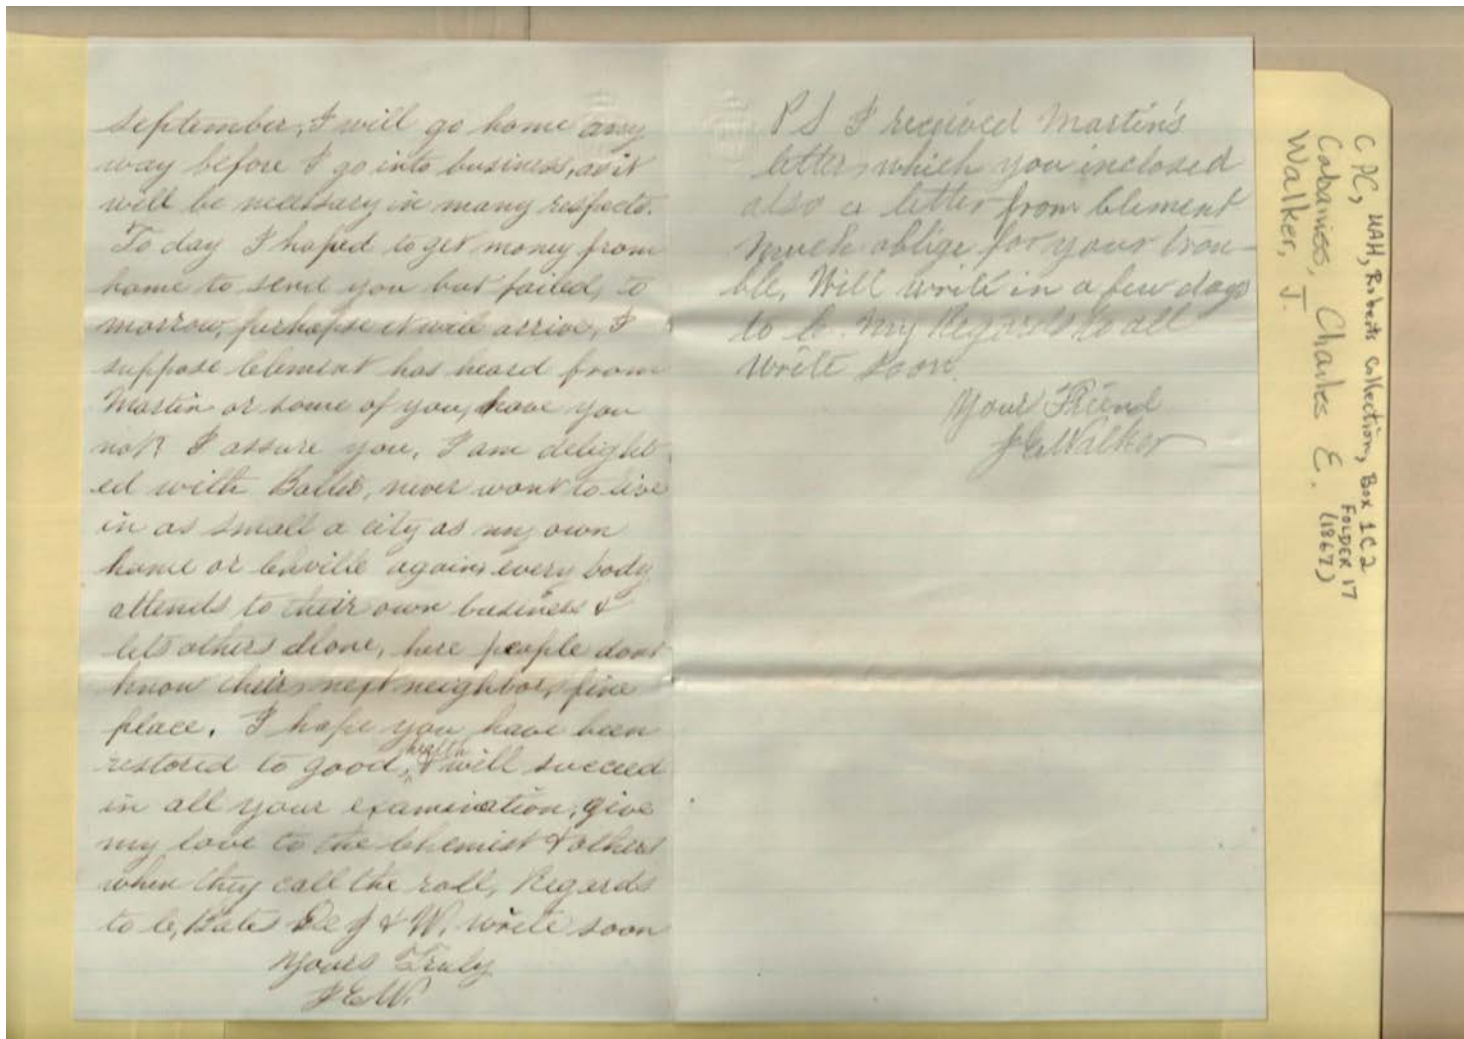 September, I will go home any
way before I go into business, as it
will be necessary in many respects.
To day I hoped to get money from
home to send you but failed, to
morrow, perhapse it will arrive, I
suppose Clement has heard from
Martin or some of you, have you
not? I assure you, I am delight
ed with Balto, never want to live
in as small a city as my own
home or Chville again, every body
attends to their own business &
lets others alone, here people dont
know their next neighbor, fine
place. I hope you have been
restored to good health, & will succeed
in all your examination, give
my love to the Chemist & others
when they call the roll, Regards
to C, Bates & W, write soon
Yours Truly
J E W.
P S I received Martin's
letter, which you inclosed
also a letter from Clement
much oblige for your trou-
ble, Will write in a few days
to C. My Regards to all
write soon.
Your Friend
J E Walker
CPC, UAH, Roberts Collection, Box 1C2
FOLDER 17
(1867)
Cabaniss, Charles E.
Walker, J.